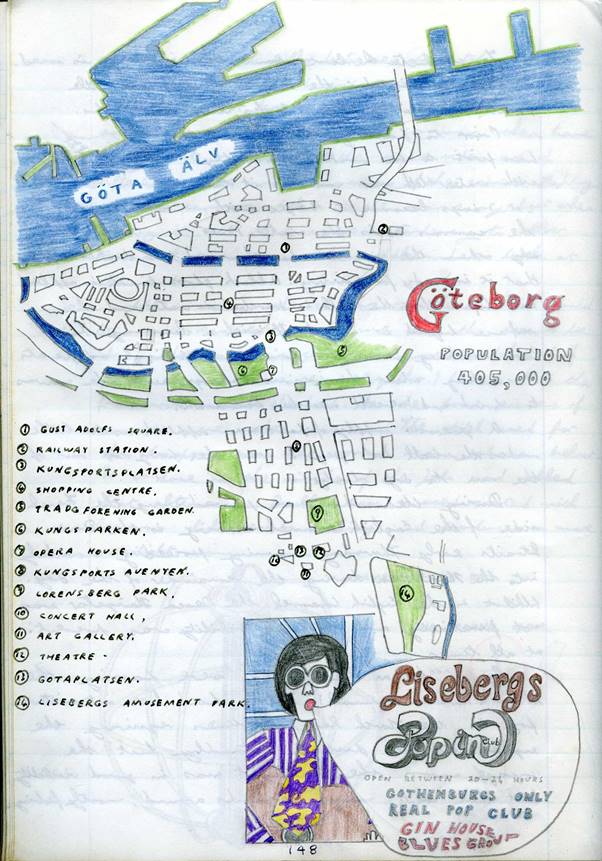 GÖTA ÄLV
Göteborg
POPULATION
405,000
① GUST ADOLFS SQUARE.
② RAILWAY STATION.
③ KUNGSPORTSPLATSEN.
④ SHOPPING CENTRE.
⑤ TRADGFORENING GARDEN.
⑥ KUNGSPARKEN.
⑦ OPERA HOUSE.
⑧ KUNGSPORTS AVENYEN.
⑨ LORENSBERG PARK.
⑩ CONCERT HALL,
⑪ ART GALLERY.
⑫ THEATRE -
⑬ GOTAPLATSEN.
⑭ LISEBERGS AMUSEMENT PARK.
Lisebergs
Pop in Club
OPEN BETWEEN 20-24 HOURS
GOTHENBURGS ONLY
REAL POP CLUB
GIN HOUSE
BLUES GROUP
148